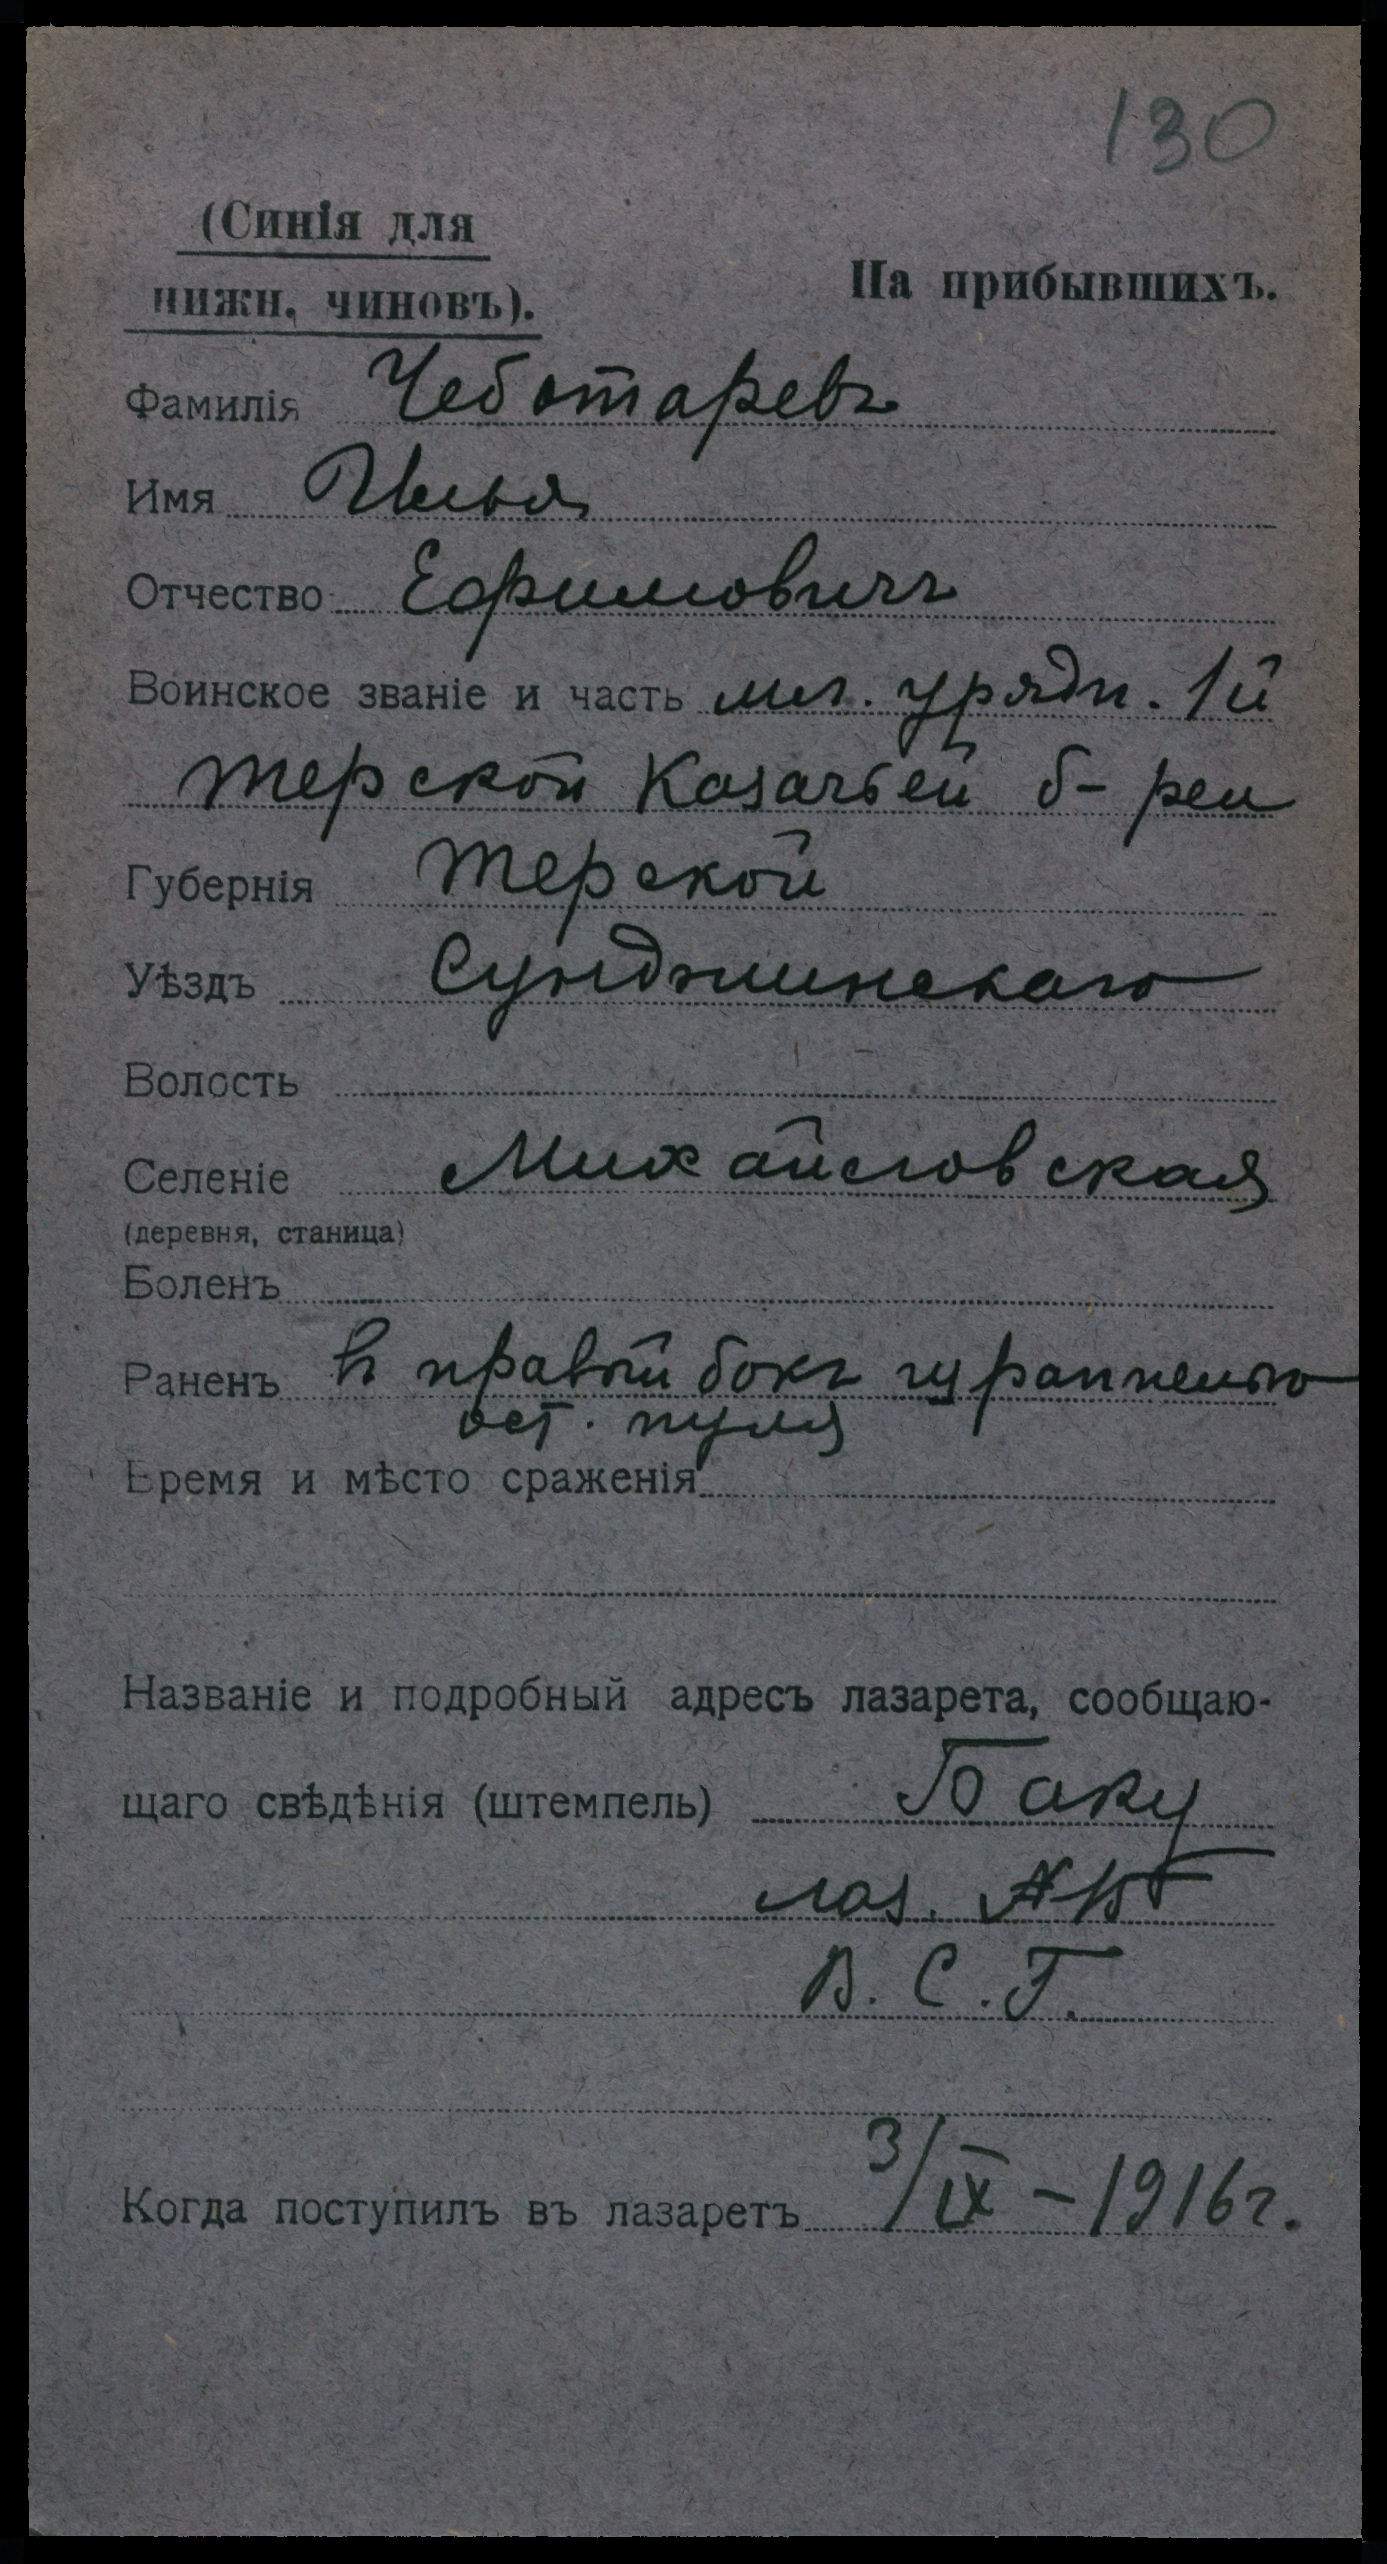 130
(Синія для
нижн. чиновъ).
На прибывшихъ.
Фамилія Чеботаревъ
Имя Илья
Отчество Ефимовичъ
Воинское званіе и часть мл. урядн. 1й
Терской Казачьей б-реи
Губернія Терской
Уѣздъ Сунджинскаго
Волость
Селеніе Михайловская
(деревня, станица)
Боленъ
Раненъ въ правый бокъ шрапнелью
ост. пуля
Время и мѣсто сраженія
Названіе и подробный адресъ лазарета, сообщаю-
щаго свѣдѣнія (штемпель) Баку
лаз. №
В. С. Г.
Когда поступилъ въ лазаретъ 3/IX - 1916 г.